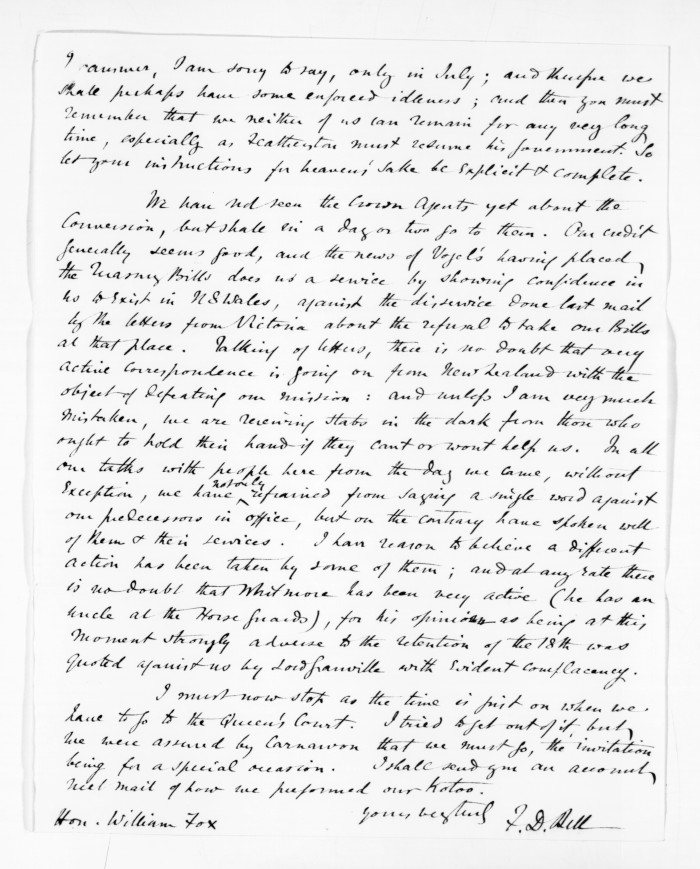 I answer, I am sorry to say, only in July; and therefore we
shall perhaps have some enforced idleness; and then you must
remember that we neither of us can remain for any very long
time, especially as Featherston must resume his Government. So
let your instructions for heaven's sake be Explicit & complete.
We have not seen the Crown Agents yet about the
Conversion, but shall in a day or two go to them. Our credit
generally seems good, and the news of Vogel's having placed
the Treasury Bills does us a service by showing confidence in
us to Exist in N S Wales, against the disservice done last mail
by the letters from Victoria about the refusal to take our Bills
at that place. Talking of letters, there is no doubt that very
active correspondence is going on from New Zealand with the
object of defeating our mission: and unless I am very much
mistaken, we are receiving stabs in the dark from those who
ought to hold their hand if they cant or wont help us. In all
our talks with people here from the day we came, without
Exception, we have not only refrained from saying a single word against
our predecessors in office, but on the contrary have spoken well
of them & their services. I have reason to believe a different
action has been taken by some of them; and at any rate there
is no doubt that Whitmore has been very active (he has an
Uncle at the Horse Guards), for his opinion as being at this
moment strongly adverse to the retention of the 18th was
quoted against us by Lord Granville with Evident complacency.
I must now stop as the time is just on when we
have to go to the Queen's Court. I tried to get out of it, but
we were assured by Carnarvon that we must go, the invitation
being for a special occasion. I shall send you an account
next mail of how we performed our Kotoo.
yours very truly F. D. Bell
Hon. William Fox